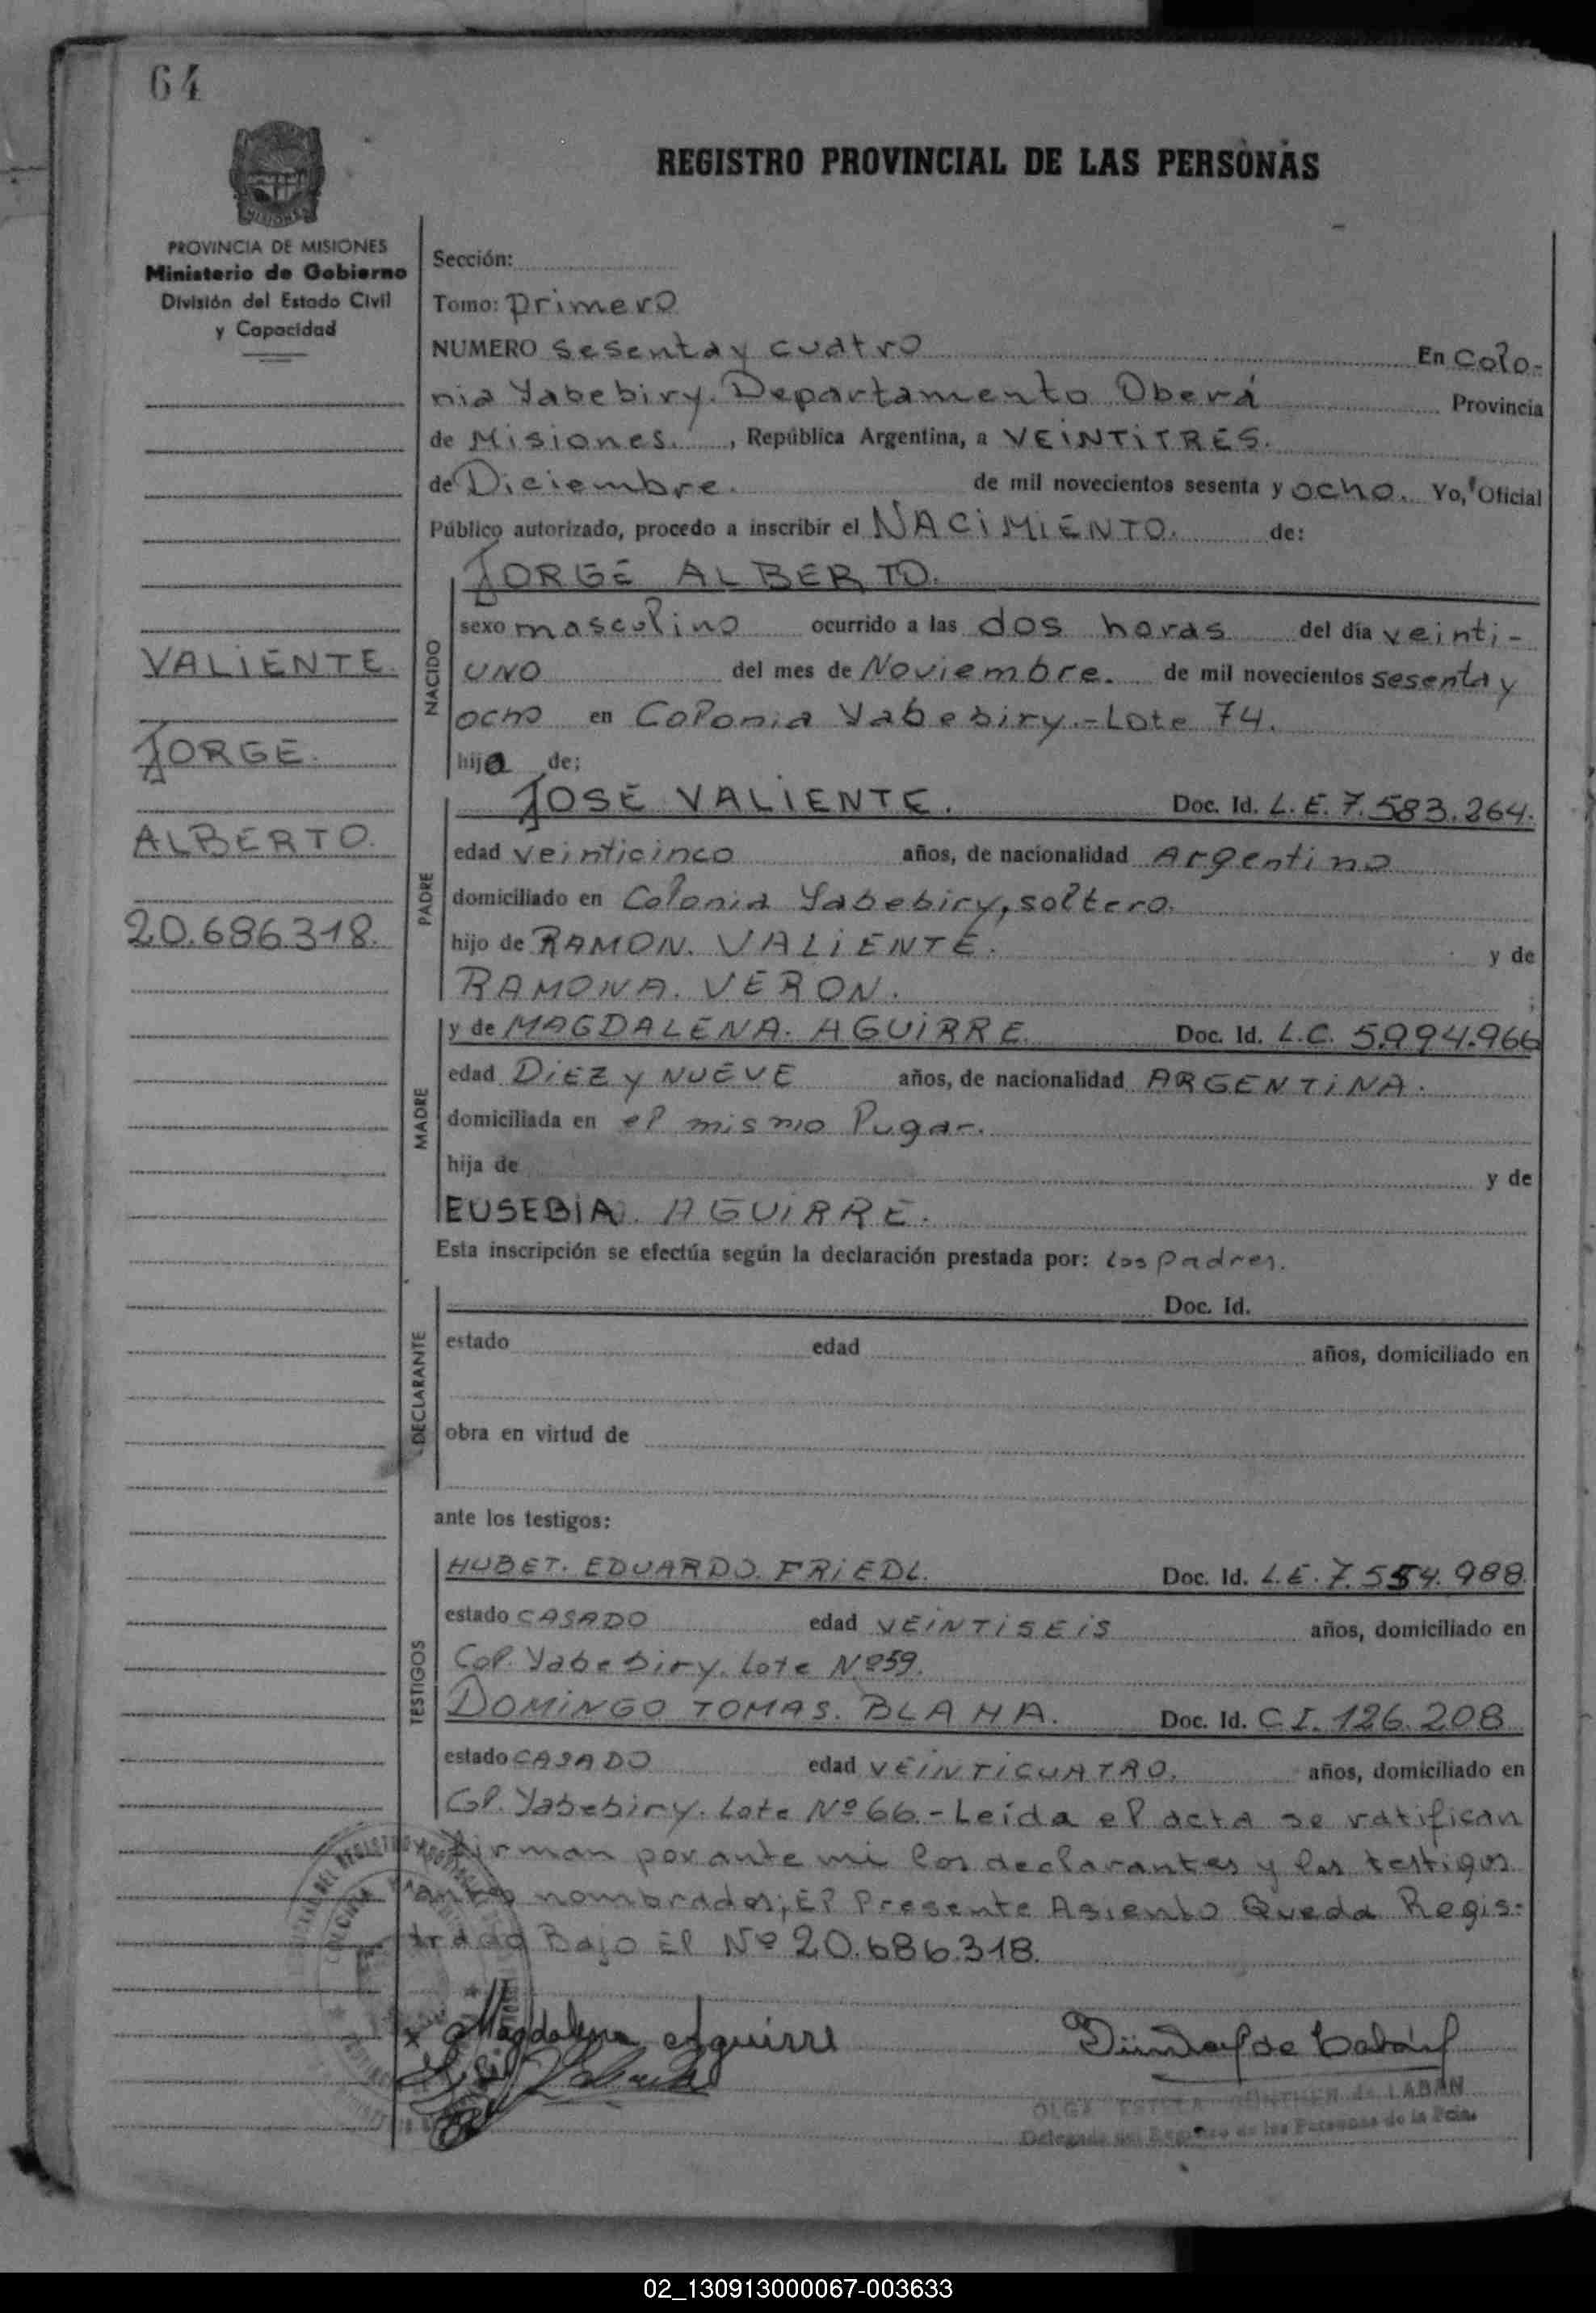 64
REGISTRO PROVINCIAL DE LAS PERSONAS
MISIONES
PROVINCIA DE MISIONES
Ministerio de Gobierno
División del Estado Civil
y Capacidad
VALIENTE.
JORGE.
ALBERTO.
20.686.318.
Sección:
Tomo: primero
NUMERO sesenta y cuatro En Colo-
nia Yabebiry. Departamento Oberá Provincia
de Misiones. , República Argentina, a VEINTITRES.
de Diciembre. de mil novecientos sesenta y ocho. Yo, Oficial
Público autorizado, procedo a inscribir el NACIMIENTO. de:
NACIDO
JORGE ALBERTO.
sexo masculino ocurrido a las dos horas del día veinti-
uno del mes de Noviembre. de mil novecientos sesenta y
ocho en Colonia Yabebiry.- Lote 74.
hijo de:
PADRE
JOSE VALIENTE. Doc. Id. L.E. 7.583.264.
edad veinticinco años, de nacionalidad Argentino
domiciliado en Colonia Yabebiry, soltero.
hijo de RAMON. VALIENTE. y de
RAMONA. VERON. ;
MADRE
y de MAGDALENA. AGUIRRE. Doc. Id. L.C. 5.994.966
edad DIEZ y NUEVE años, de nacionalidad ARGENTINA.
domiciliada en el mismo lugar.
hija de y de
EUSEBIA. AGUIRRE.
Esta inscripción se efectúa según la declaración prestada por: los padres.
DECLARANTE
Doc. Id.
estado edad años, domiciliado en
obra en virtud de
ante los testigos:
TESTIGOS
HUBET. EDUARDO. FRIEDL. Doc. Id. L.E. 7.554.988.
estado CASADO edad VEINTISEIS años, domiciliado en
Col. Yabebiry. Lote Nº 59.
DOMINGO TOMAS. BLAHA. Doc. Id. C.I. 126.208
estado CASADO edad VEINTICUATRO. años, domiciliado en
Col. Yabebiry. Lote Nº 66.- Leída el acta se ratifican
firman por ante mi los declarantes y los testigos
antes nombrados; El Presente Asiento Queda Regis-
trado Bajo El Nº 20.686.318.
x Magdalena Aguirre
OLGA ESTELA GÜNTHER de LABAN
Delegada del Registro de las Personas de la Pcia.
02_130913000067-003633